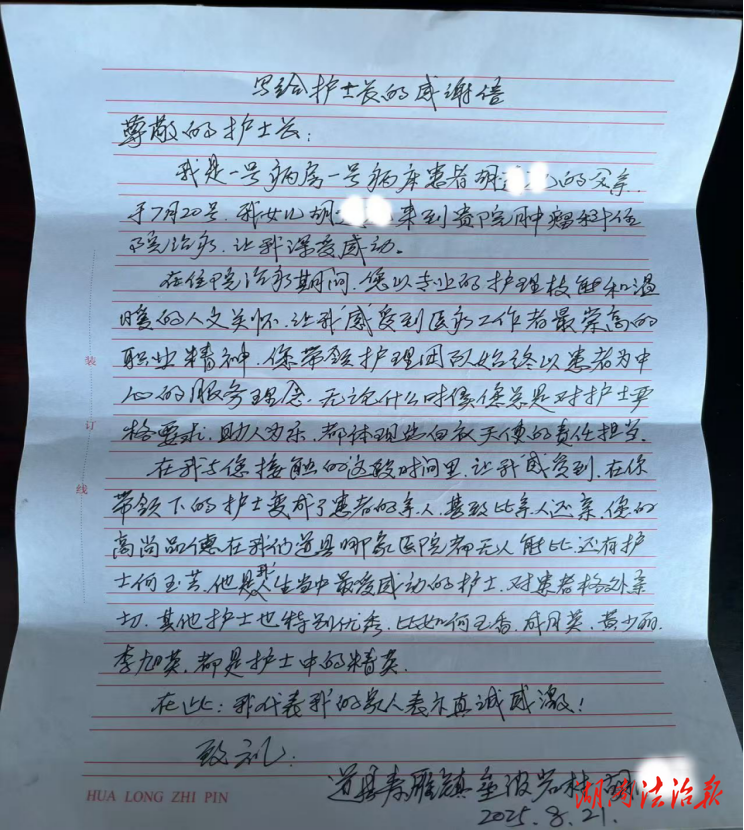 写给护士长的感谢信
尊敬的护士长：
我是一号病房一号病床患者胡的父亲.
于7月20号.我女儿胡来到贵院肿瘤科住
院治疗.让我深受感动。
在住院治疗期间.您以专业的护理技能和温
暖的人文关怀.让我感受到医疗工作者最崇高的
职业精神.您带领护理团队始终以患者为中
心的服务理念.无论什么时候您总是对护士严
格要求.助人为乐.都体现出白衣天使的责任担当.
装
在我与您接触的这段时间里.让我感受到.在你
订
带领下的护士变成了患者的亲人.甚致比亲人还亲.您的
线
高尚品德在我们道县哪家医院都无以能比.还有护
士何玉.他是我人生当中最受感动的护士.对患者格外亲
切.其他护士也特别优秀.比如何玉香.成月英.黄少丽.
李旭英.都是护士中的精英.
在此：我代表我的家人表示真诚感激！
致礼：
道县寿雁镇村胡
2025.8.21.
HUA LONG ZHI PIN
湖湘法治报